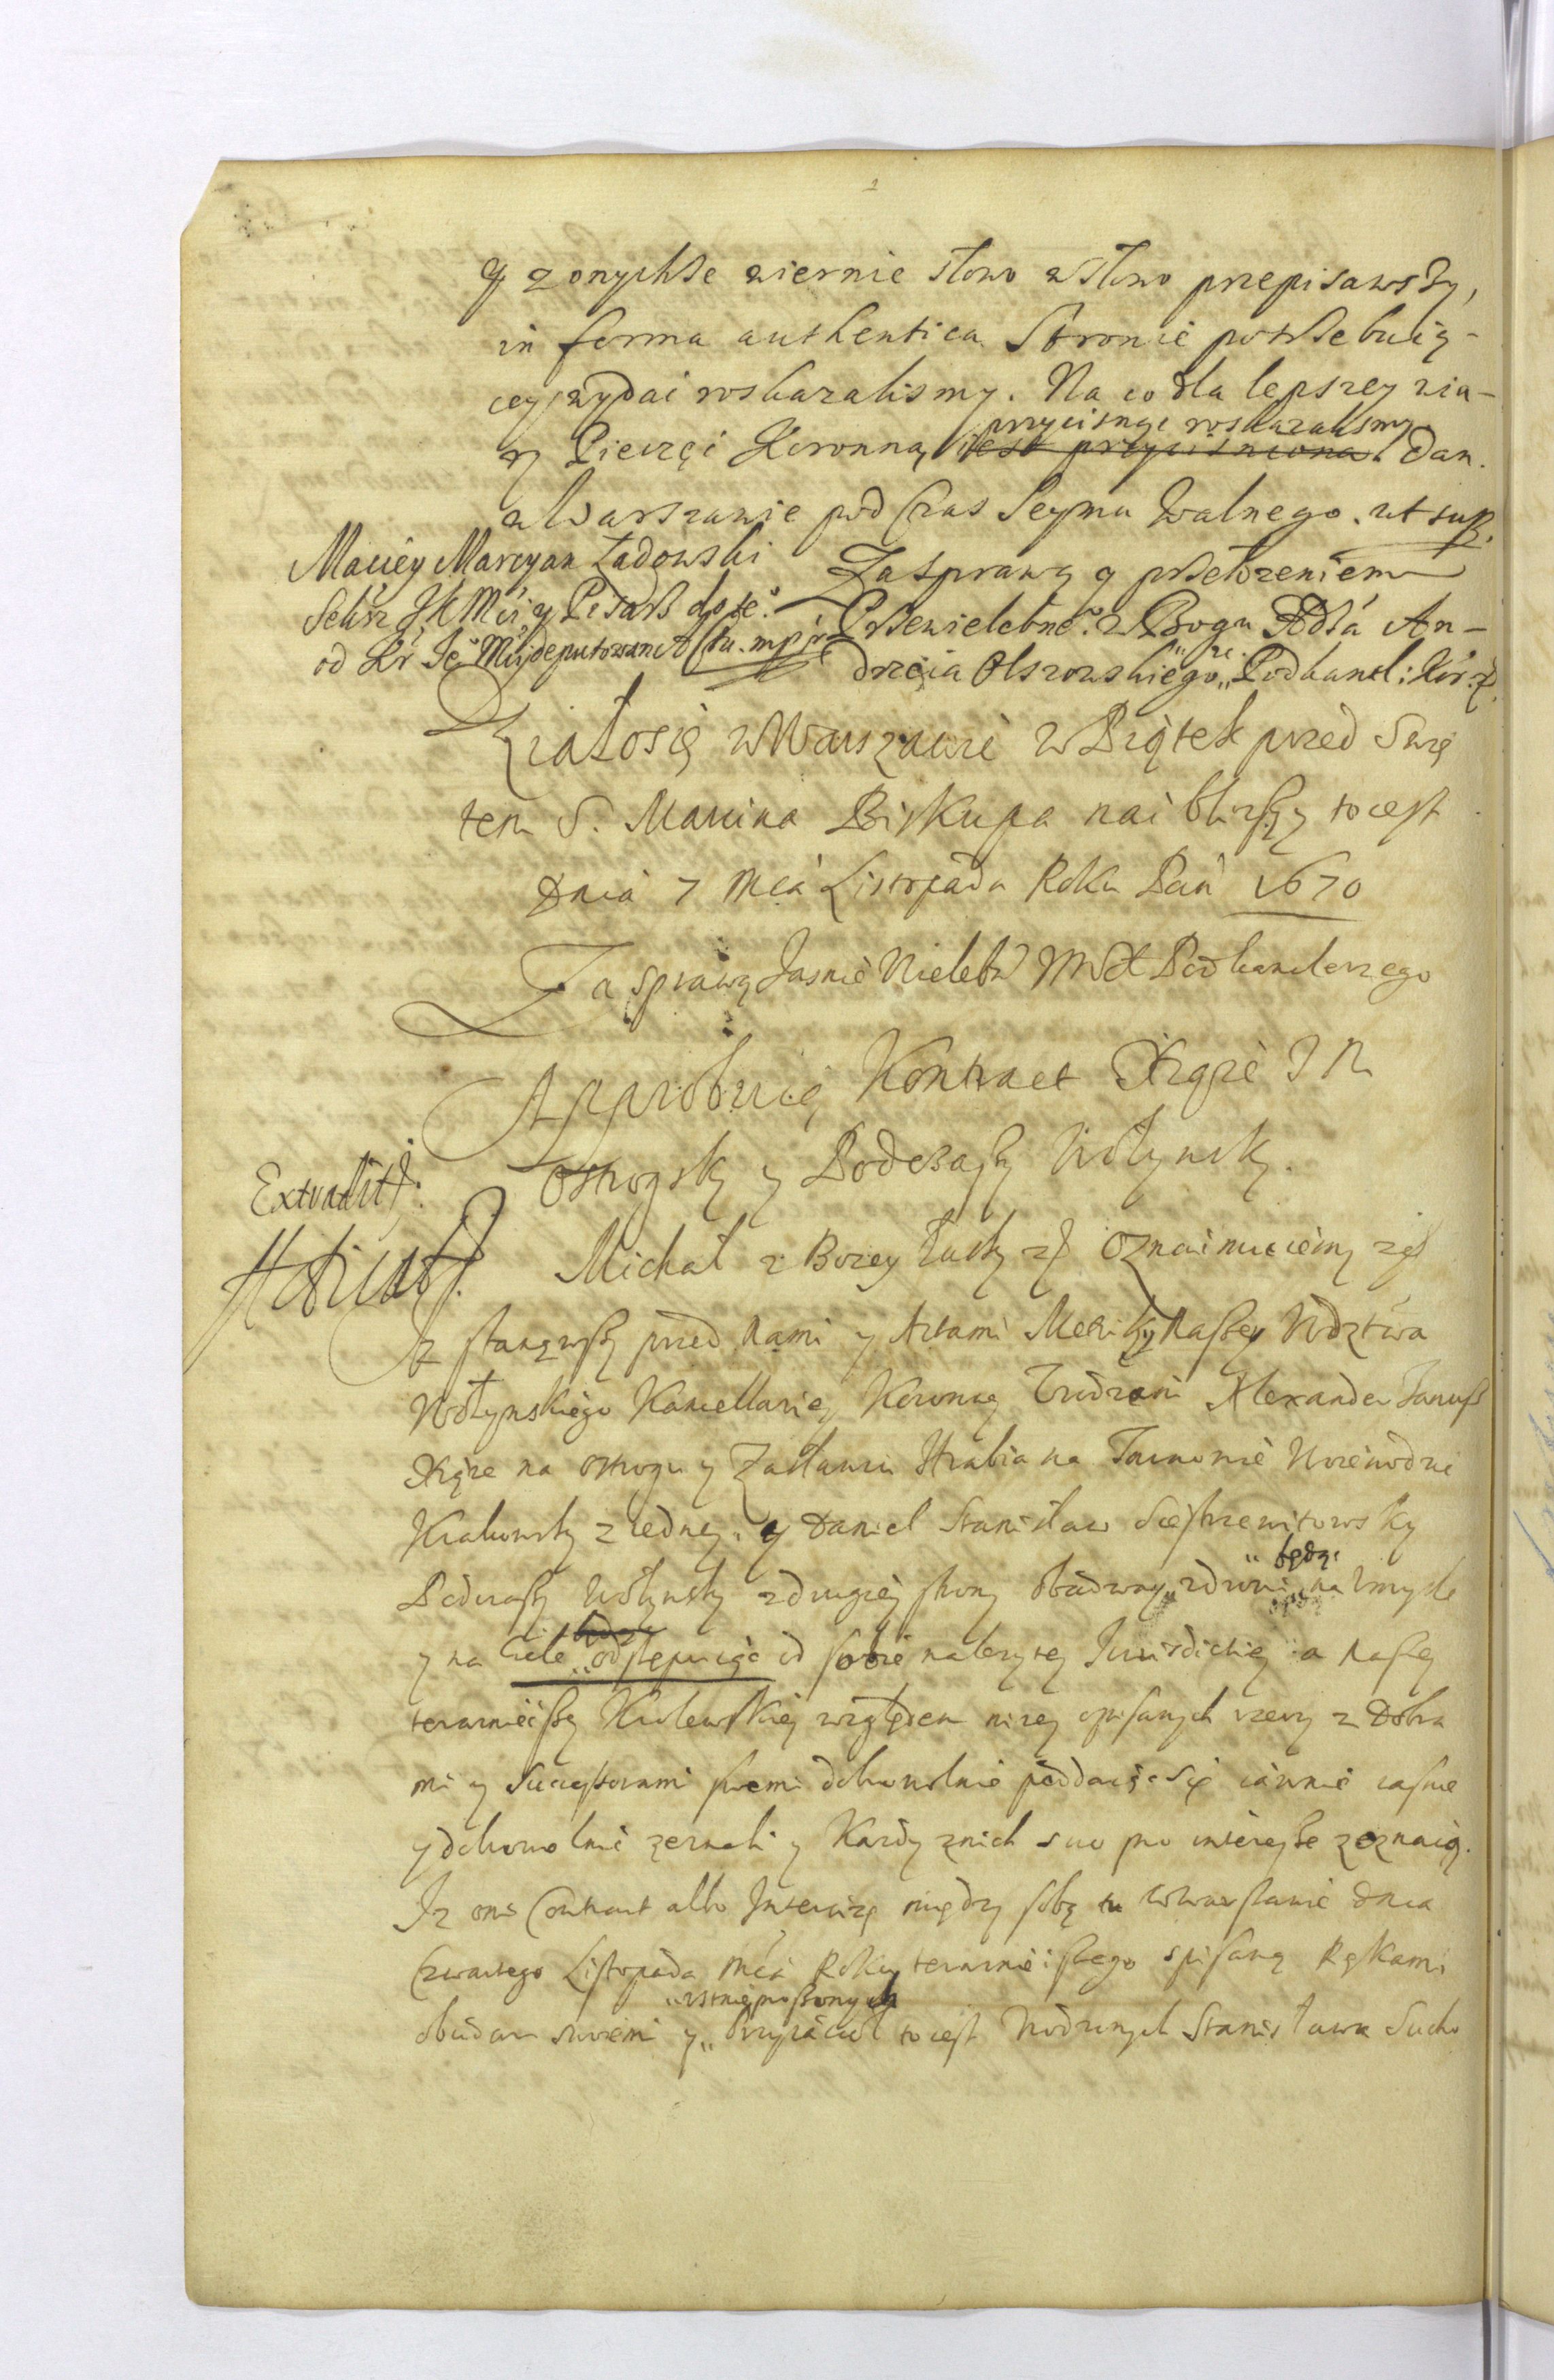 y z onychże wiernie słowo w słowo przepisawszy,
in forma authentica Stronie potrzebuią-
cey wydać roskazalismy. Na co dla lepszey wia-
przycisnąć roskazalismy
ry Pieczęć Koronną iest przycisniona. Dan.
w Warszawie pod Czas Seymu Walnego. ut sup.
Maciey Marcyan Ładowski
Sekrz JKMći, y Pisarz do te°
od Kr Je° Mći deputowany Akktu. mp
Za sprawą y przełożeniem
Przewielebne° w Bogu Xdza An-
drzeia Olszowskiego, Podkancl: Kor: etc
Działosię w Warszawie w Piątek przed Swię
tem S. Marcina Biskupa naiblizszy to iest
Dnia 7 Mca Listopada Roku Pań 1670
Za sprawą Jasnie Wielebn MX Podkanclerzego
Approbuią Kontract Xiąże I M
Ostrogsky y Podczaszy Wołynsky.
Extraditū:
Michał z Bozey Łasky etc Oznaimuiemy etc
Iz stanąwszy przed Nami y Aktami Metriky Naszey Wdztwa
Wołynskiego Kancellariey Koronney Urodzeni Alexander Janusz
Xiąze na Ostrogu y Zasławiu Hrabia na Tarnowie Woiewodzic
Krakowsky z iedney. y Daniel Stanisław Siestrzewitowsky
Podczaszy Wołynsky z drugiey strony obadway zdrowi będąc na Umysle
y na Ciele odstępuiąc od sobie nalezytey Jurisdictiey a Naszey
teraznieiszey Krolewskiey względem nizey opisanych rzeczy z Dobra
mi y Successorami swemi dobrowolnie poddaiąc się iawnie iasnie
y dobrowolnie zeznali y Kazdy z nich suo pro interesse zeznaią.
Iz oni Contract albo Intercizę między sobą tu w Warszawie dnia
Czwartego Listopada Mca Roku teraznieiszego spisaną Rękami
ustnie proszonych
obudwu swoiemi y Przyiacioł to iest Urodzonych Stanisława Sucho